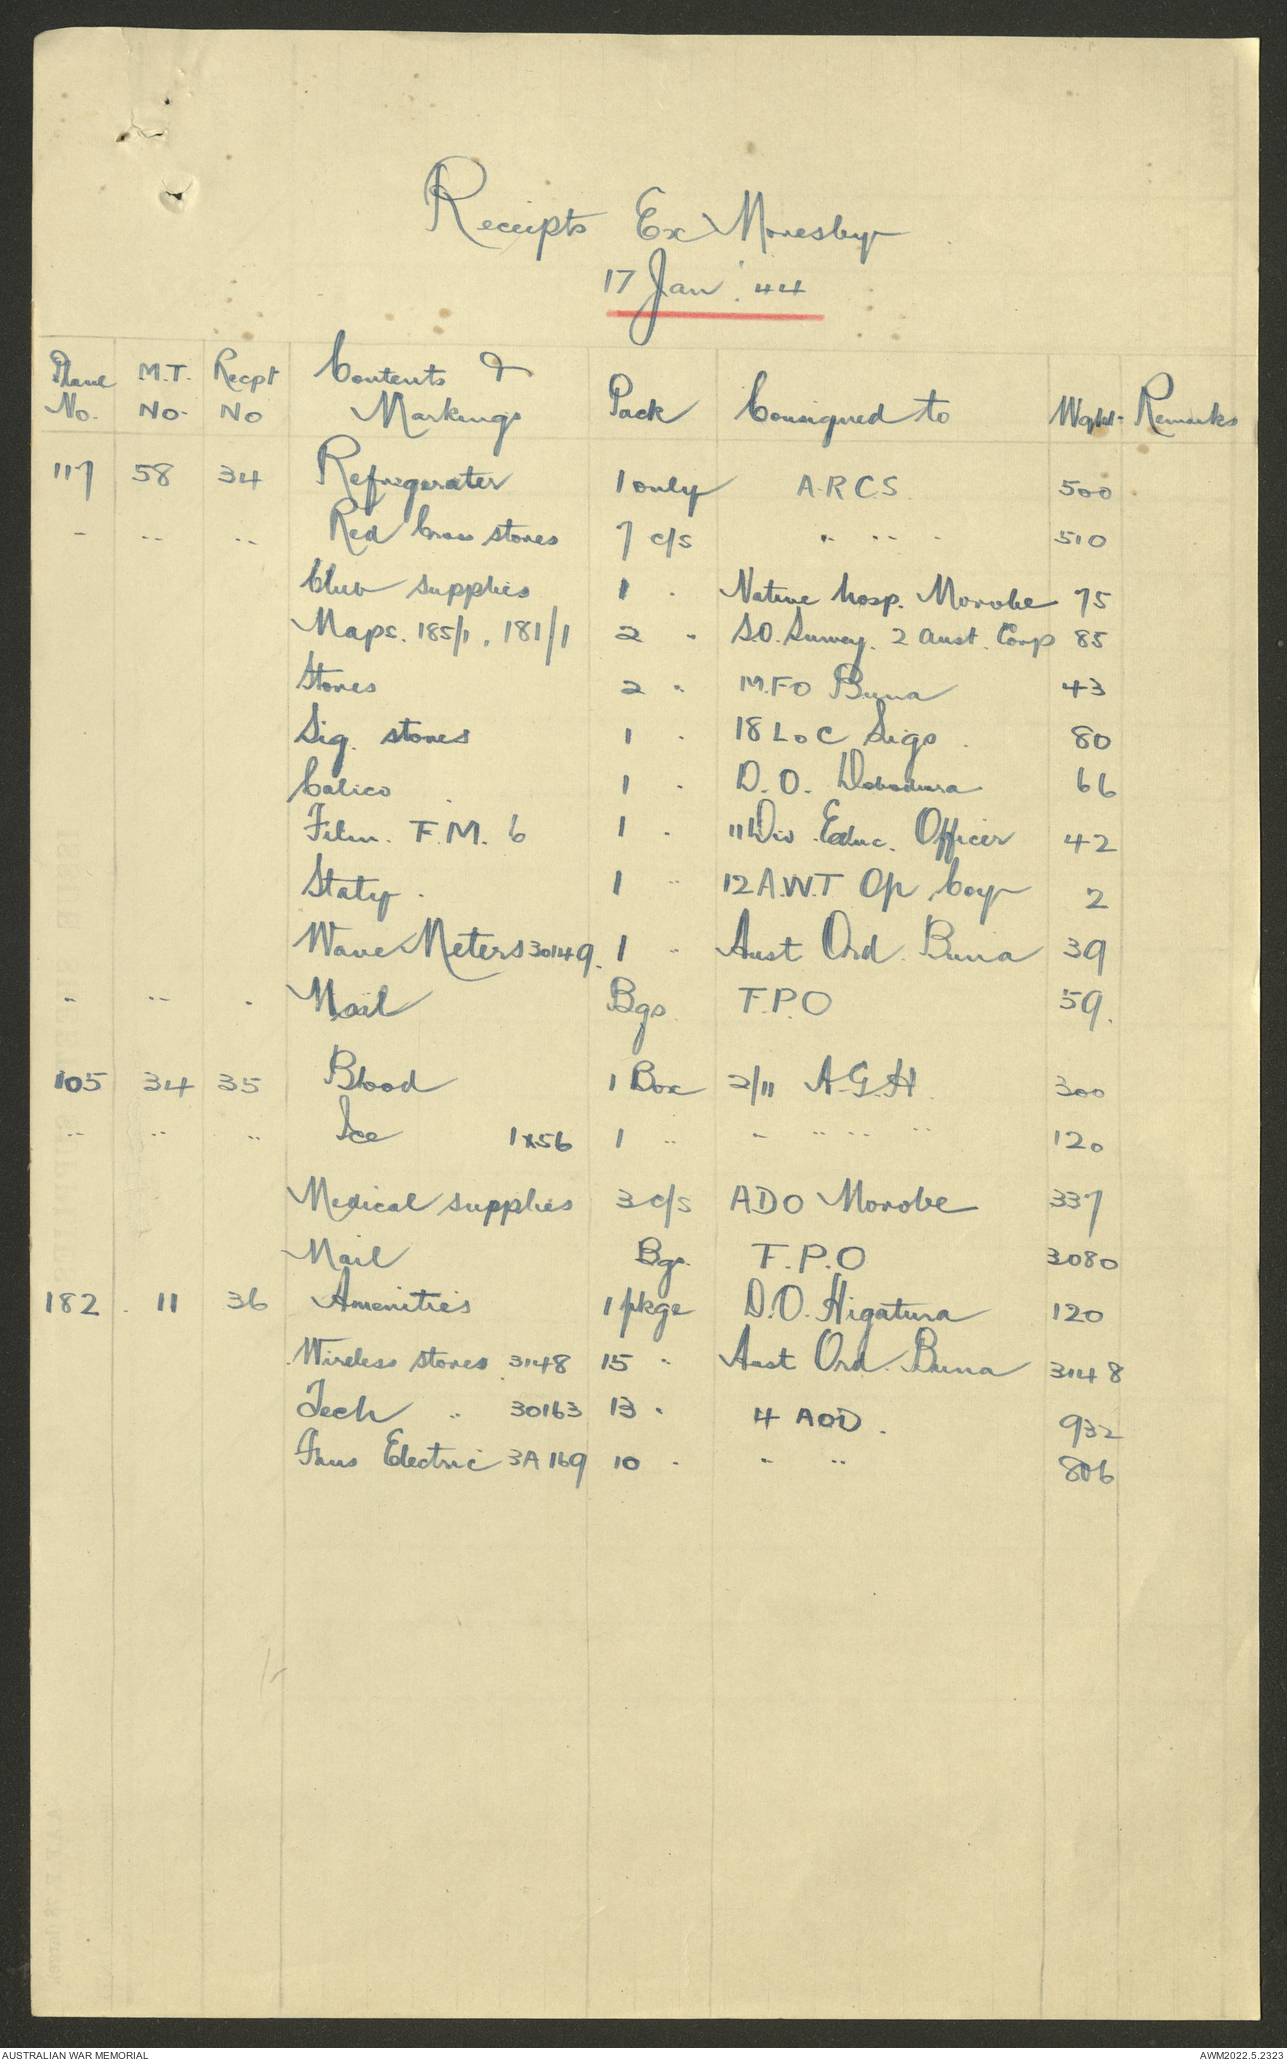 Receipts Ex Moresby
17 Jan '44
Plane No. M.T. No. Recpt No Contents & Markings Pack Consigned to Wght. Remarks
117 58 34 Refrigerater 1 only A.R.C.S. 500
" " " Red Cross stores 7 c/s " " " 510
Club supplies 1 " Native hosp. Morobe 75
Maps. 185/1, 181/1 2 " S.O. Survey. 2 Aust. Corp 85
Stores 2 " M.F.O Buna 43
Sig. stores 1 " 18 L o C Sigs. 80
Calico 1 " D.O. Dobodura 66
Film. F.M. 6 1 " 11 Div. Educ. Officer 42
Staty. 1 " 12 A.W.T Op Coy 2
Wave Meters 30149. 1 " Aust Ord. Buna 39
" " " Mail Bgs. F.P.O 59.
105 34 35 Blood 1 Box 2/11 A.G.H. 300
" " " Ice 1x56 1 " " " " " 120
Medical supplies 3 c/s ADO Morobe 337
Mail Bgs. F.P.O 3080
182. 11 36 Amenities 1 pkge D.O. Higatura 120
Wireless stores 3148 15 " Aust Ord. Buna 3148
Tech " 30163 13 " 4 AOD. 932
Electric 3A169 10 " " " 806
AUSTRALIAN WAR MEMORIAL
AWM2022.5.2323